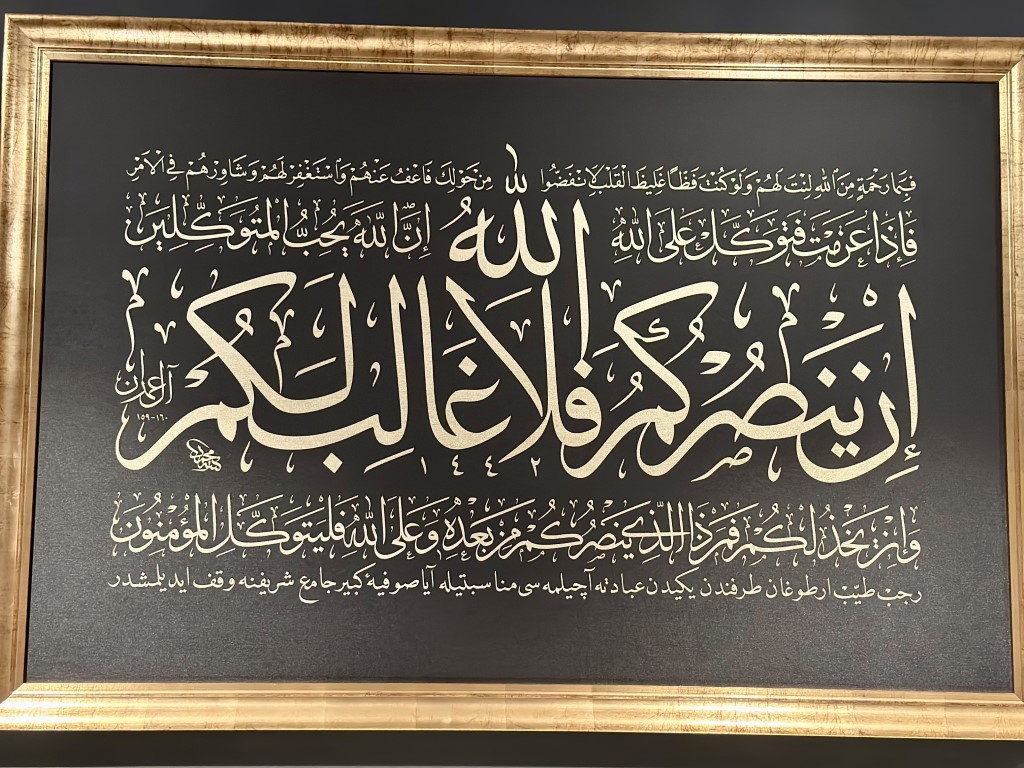 فَبِمَا رَحْمَةٍ مِنَ اللّٰهِ لِنْتَ لَهُمْ وَلَوْ كُنْتَ فَظًّا غَلِيظَ الْقَلْبِ لَانْفَضُّوا مِنْ حَوْلِكَ فَاعْفُ عَنْهُمْ وَاسْتَغْفِرْ لَهُمْ وَشَاوِرْهُمْ فِي الْاَمْرِ
فَإِذَا عَزَمْتَ فَتَوَكَّلْ عَلَى اللّٰهِ إِنَّ اللّٰهَ يُحِبُّ الْمُتَوَكِّلِينَ
إِنْ يَنْصُرْكُمُ اللّٰهُ فَلَا غَالِبَ لَكُمْ
آل عمران
١٥٩-١٦٠
١٤٤٢
وَإِنْ يَخْذُلْكُمْ فَمَنْ ذَا الَّذِي يَنْصُرُكُمْ مِنْ بَعْدِهِ وَعَلَى اللّٰهِ فَلْيَتَوَكَّلِ الْمُؤْمِنُونَ
رجب طيّب اردوغان طرفندن يكيدن عبادته آچيلمه سى مناسبتيله آيا صوفيهٔ كبير جامع شريفنه وقف ايديلمشدر